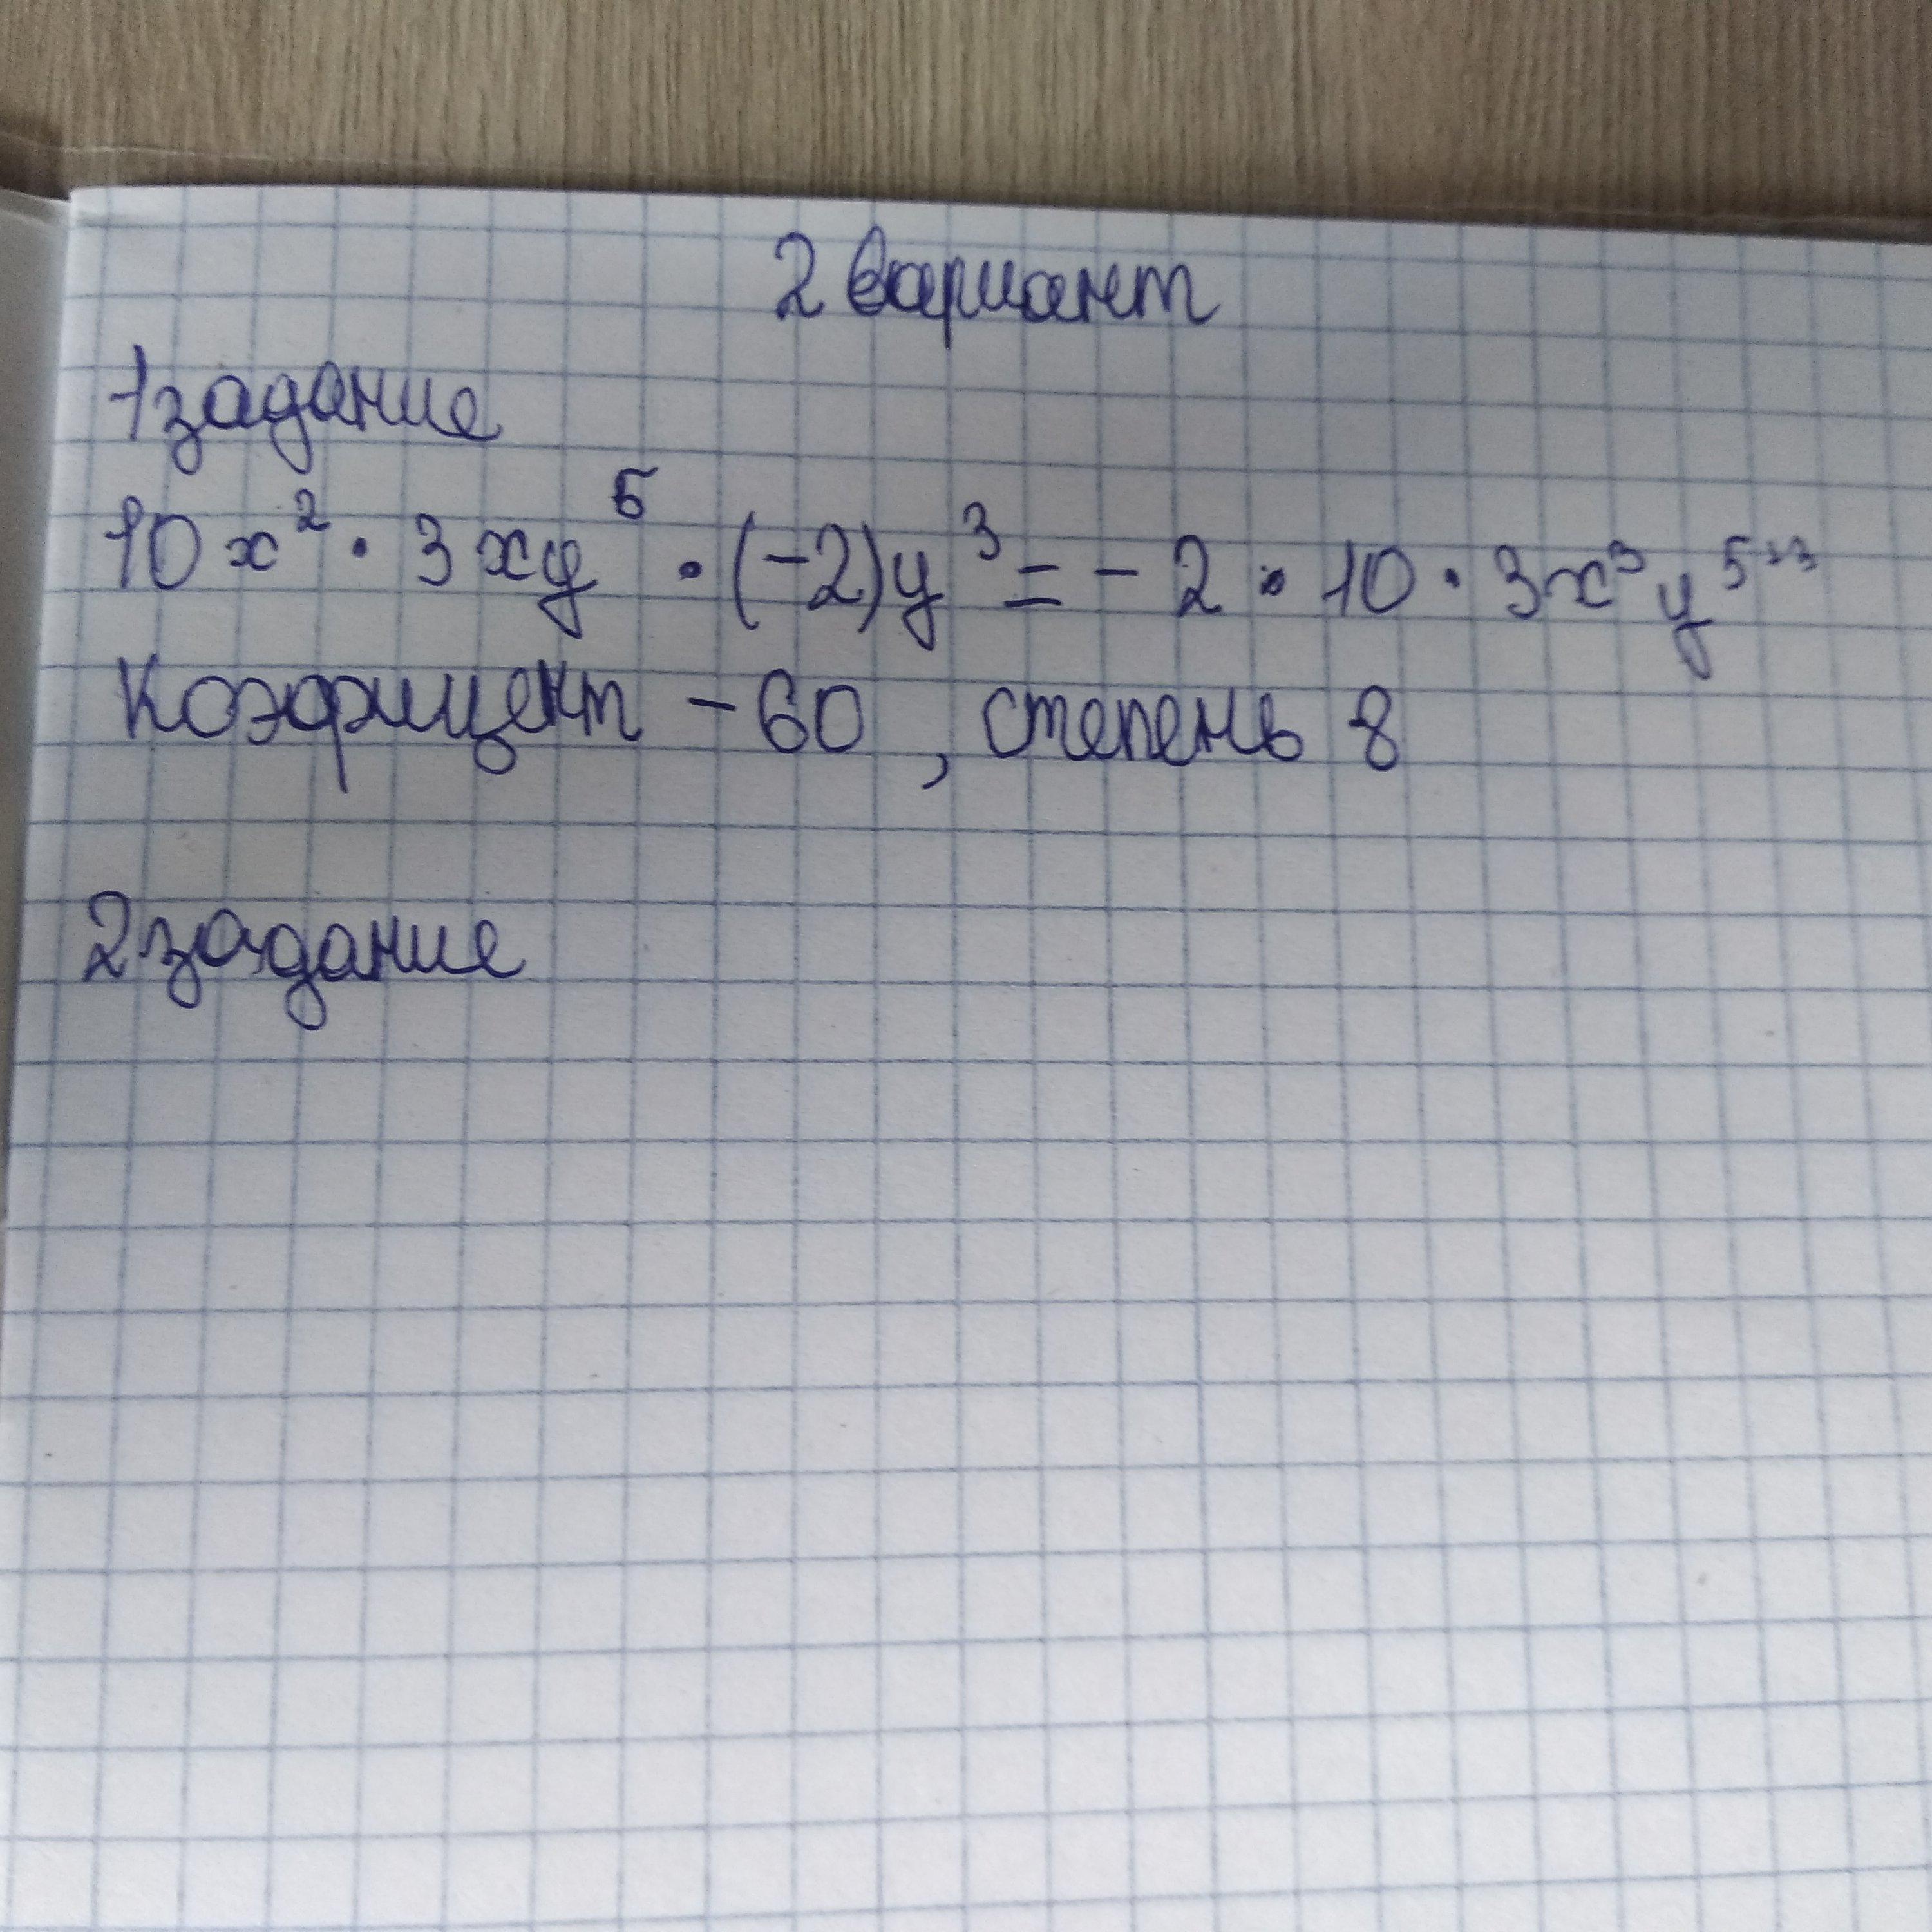 2 вариант
1 задание
10x² · 3xy⁵ · (-2)y³ = - 2 · 10 · 3x³y⁵⁺³
Коэфицент - 60 , степень 8
2 задание